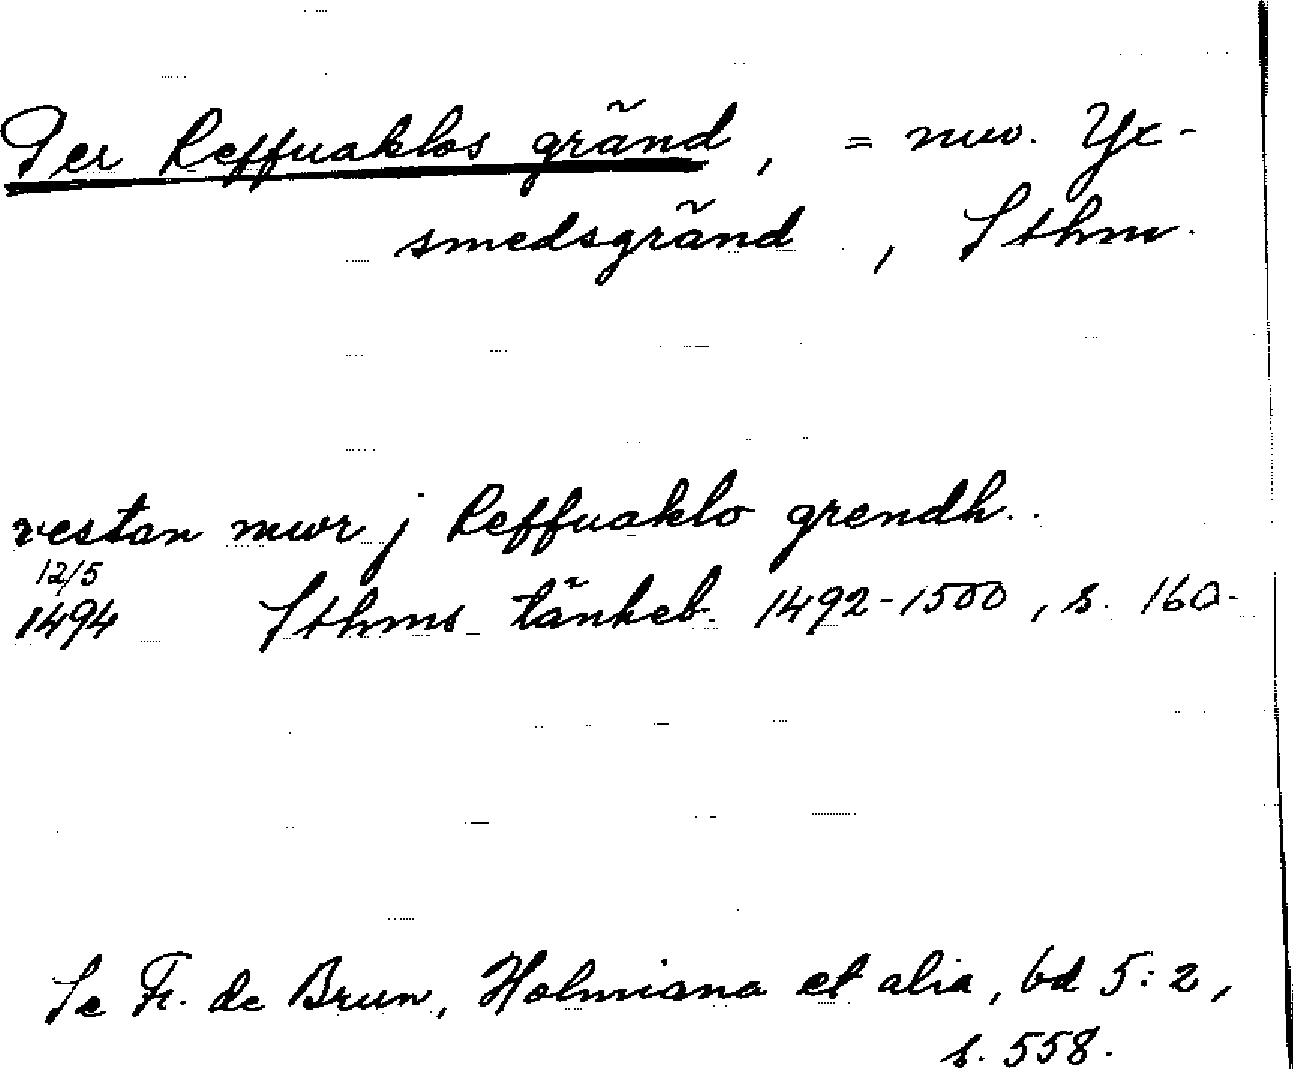 Per Reffuaklos gränd, = nuv. Yx-
smedsgränd, Sthm.
vestan mwr j Reffuaklo grendh..
12/5
1494 Sthms tänkeb. 1492-1500, s. 160.
Se Fr. de Brun, Holmiana et alia, bd 5:2,
s. 558.